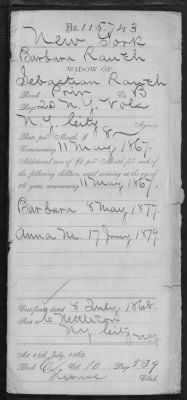 No. 115743
New York
Barbara Rauth
WIDOW OF
Sebastian Rauth
Rank Priv Co. B
Reg. 20 N.Y. Vols
N.Y. City Agency
Rate per Month, $ 8
Commencing 11 May, 1867.
Additional sum of $2 per Month for each of
the following children, until arriving at the age of
16 years, commencing 11 May 1867.
Barbara 8 May, 1877.
Anna M. 17 Jany, 1879.
Certificate dated 8 July, 1868.
Sent to C. Nettleton
N.Y. City N.Y.
Act 14th July, 1862.
Book Vol. 10 Page 539
Clerk.